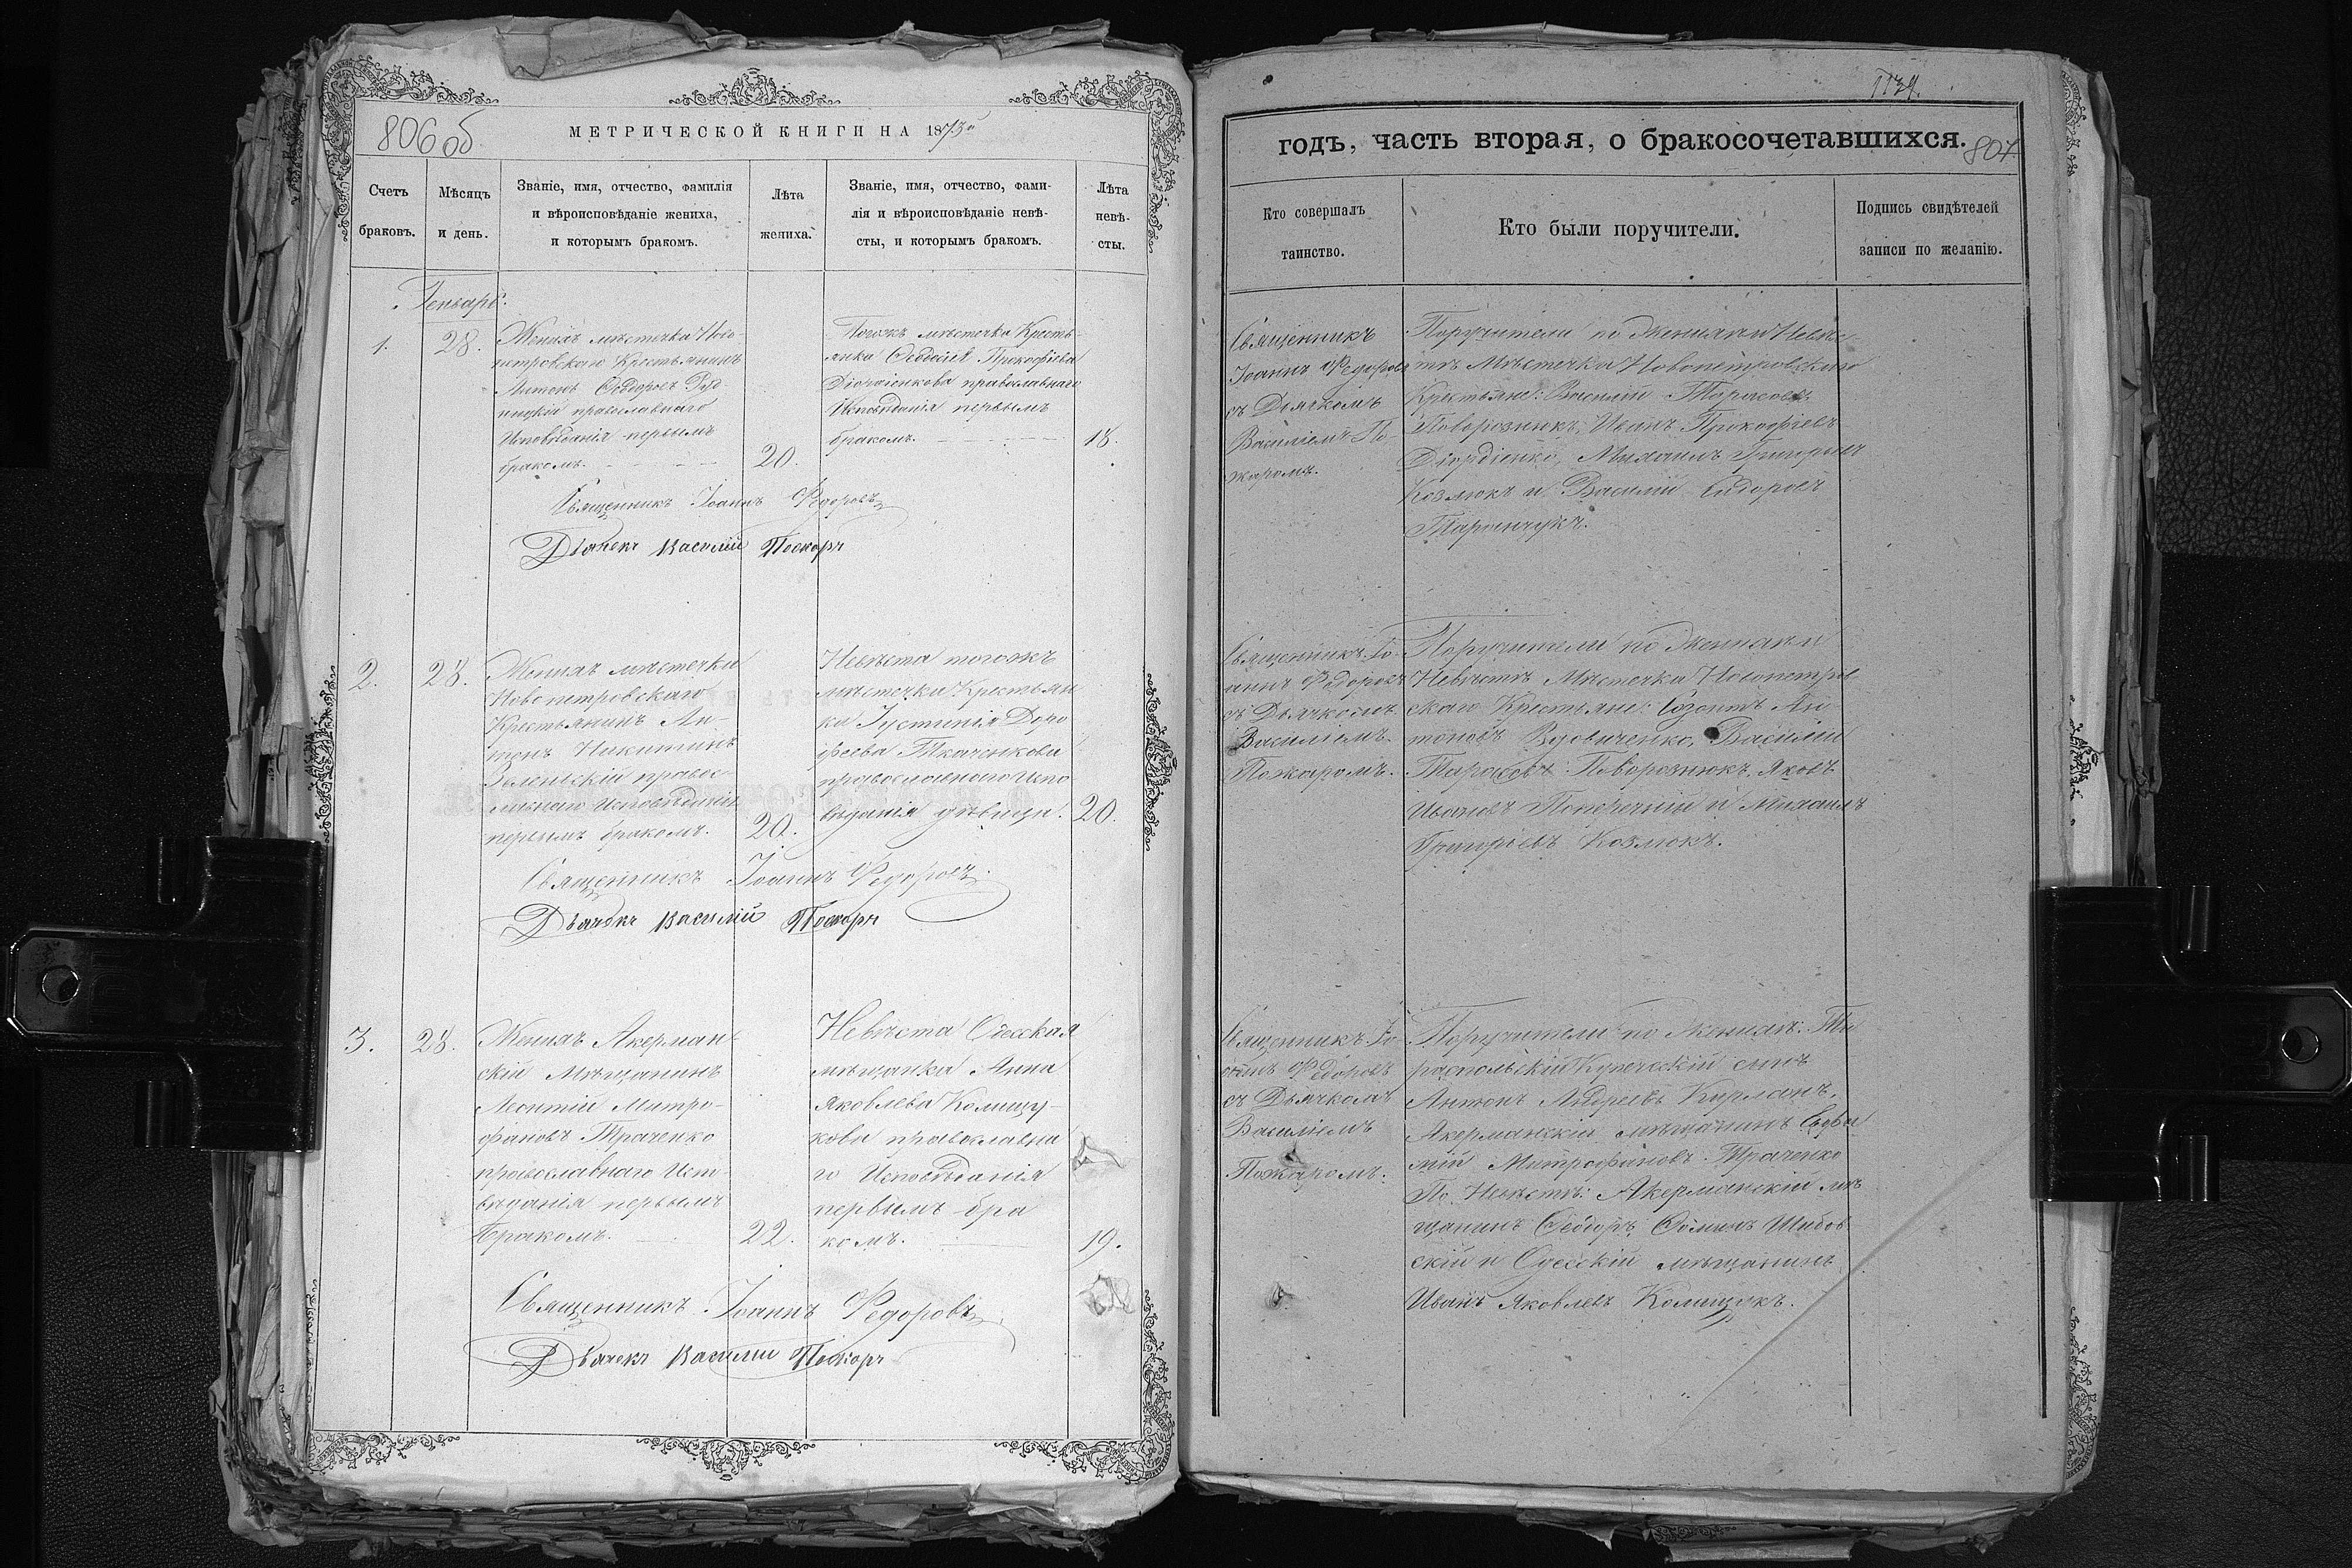 806 об
МЕТРИЧЕСКОЙ КНИГИ НА 1873й
Счетъ
браковъ.
Мѣсяцъ
и день.
Званіе, имя, отчество, фамилія
и вѣроисповѣданіе жениха,
и которымъ бракомъ.
Лѣта
жениха.
Званіе, имя, отчество, фами-
лія и вѣроисповѣданіе невѣ-
сты, и которымъ бракомъ.
Лѣта
невѣ-
сты.
Генварь.
1.
28.
Женихъ мѣстечка Ново-
петровскаго Крестьянинъ
Антонъ Ѳеодоровъ
православнаго
Исповѣданія первымъ
бракомъ.
20.
Тогожъ мѣстечка Кресть-
янка Прокофіева
Діордіенкова православнаго
Исповѣданія первымъ
бракомъ.
18.
Священникъ Іоаннъ Федоровъ
Дьячекъ Василій Пожаръ
2.
28.
Женихъ мѣстечка
Новопетровскаго
Крестьянинъ Ан-
тонъ Никитинъ
Зеленьскій правос-
лавнаго Исповѣданія
первымъ бракомъ.
20.
Невѣста тогожъ
мѣстечка Крестьян
ка Іустинія Доро
феева Ткаченкова
православнаго Испо
вѣданія дѣвица.
20.
Священникъ Іоаннъ Федоровъ.
Дьячокъ Василій Пожаръ
3.
28.
Женихъ Акерман
скій Мѣщанинъ
Леонтій Митро-
фановъ Траченко
православнаго Испо-
вѣданія первымъ
бракомъ.
22.
Невѣста Одесская
мѣщанка Анна
Яковлева Комищу-
кова православна
го Исповѣданія
первымъ бра
комъ.
19.
Священникъ Іоаннъ Федоровъ.
Дьячекъ Василій Пожаръ
1134.
годъ, часть вторая, о бракосочетавшихся.
807
Кто совершалъ
таинство.
Кто были поручители.
Подпись свидѣтелей
записи по желанію.
Священникъ
Іоаннъ Федоровъ
съ Дьячкомъ
Василіемъ По-
жаромъ.
Поручители по Женихѣ и Невѣс-
тѣ Мѣстечка Новопетровскаго
Крестьяне: Василій Тарасовъ
Поворознюкъ, Иванъ Прокофіевъ
Діордіенко, Михаилъ Григорьевъ
Козлюкъ и Василій Сидоровъ
Таранчукъ.
Священникъ Іо-
аннъ Федоровъ
съ Дьячкомъ
Василіемъ
Пожаромъ.
Поручители по Женихѣ и
Невѣстѣ Мѣстечка Новопетров
скаго Крестьяне: Созонтъ Ан-
тоновъ Вдовиченко, Василій
Тарасовъ Поворознюкъ, Яковъ
Ивановъ Поперечный и Михаилъ
Григоріевъ Козлюкъ.
Священникъ Іо-
аннъ Федоровъ
съ Дьячкомъ
Василіемъ
Пожаромъ.
Поручители по Женихѣ: Ти
распольскій Купеческій сынъ
Антонъ Андреевъ Курланъ,
Акерманскій мѣщанинъ
Митрофановъ Траченко
По Невѣстѣ: Акерманскій мѣ
щанинъ Ѳеодоръ Ѳоминъ Шабов
скій и Одесскій мѣщанинъ
Иванъ Яковлевъ Комищукъ.